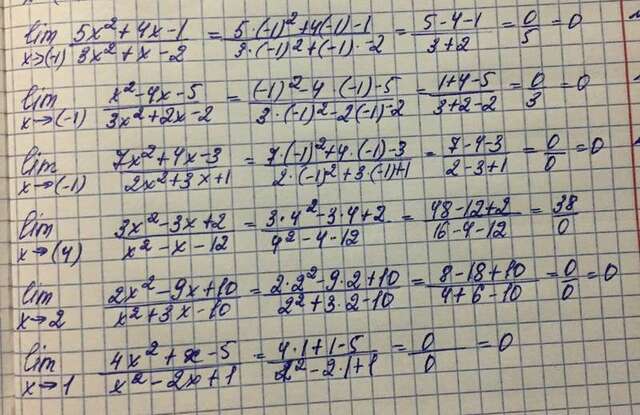 lim x→(-1) (5x²+4x-1)/(3x²+x-2) = (5·(-1)²+4(-1)-1)/(3·(-1)²+(-1)·-2) = (5-4-1)/(3+2) = 0/5 = 0
lim x→(-1) (x²-4x-5)/(3x²+2x-2) = ((-1)²-4·(-1)-5)/(3·(-1)²-2(-1)-2) = (1+4-5)/(3+2-2) = 0/3 = 0
lim x→(-1) (7x²+4x-3)/(2x²+3x+1) = (7·(-1)²+4·(-1)-3)/(2·(-1)²+3·(-1)+1) = (7-4-3)/(2-3+1) = 0/0 = 0
lim x→(4) (3x²-3x+2)/(x²-x-12) = (3·4²-3·4+2)/(4²-4-12) = (48-12+2)/(16-4-12) = 38/0
lim x→2 (2x²-9x+10)/(x²+3x-10) = (2·2²-9·2+10)/(2²+3·2-10) = (8-18+10)/(4+6-10) = 0/0 = 0
lim x→1 (4x²+x-5)/(x²-2x+1) = (4·1+1-5)/(2²-2·1+1) = 0/0 = 0